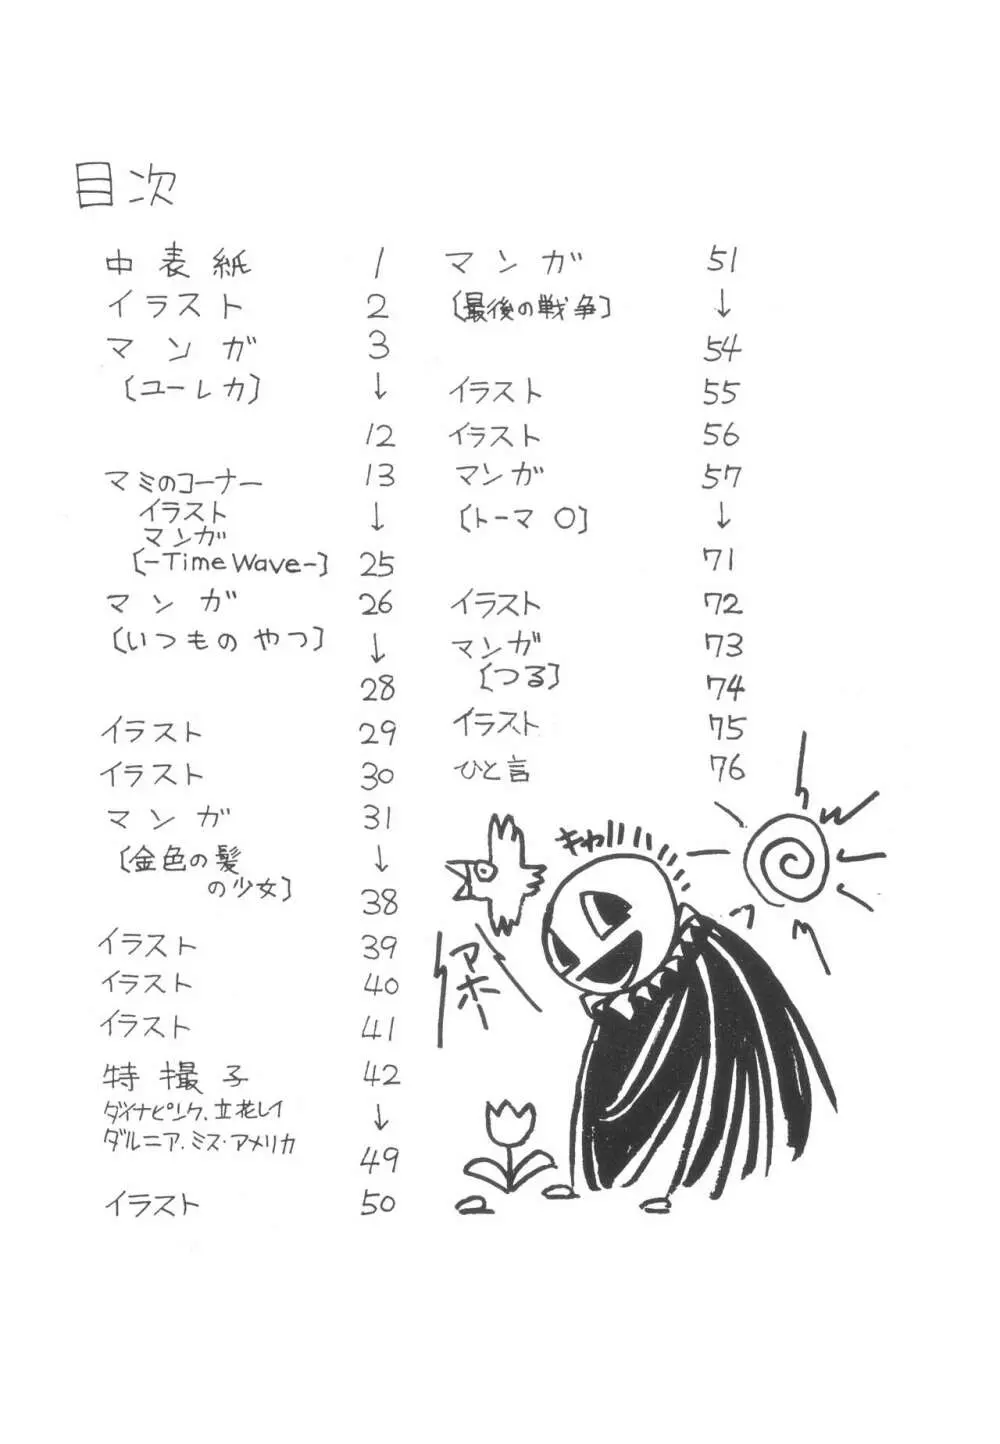 目次
中表紙 1
イラスト 2
マンガ 3
〔ユーレカ〕 ↓
12
マミのコーナー 13
イラスト ↓
マンガ
〔-Time Wave-〕 25
マンガ 26
〔いつものやつ〕 ↓
28
イラスト 29
イラスト 30
マンガ 31
〔金色の髪 ↓
の少女〕 38
イラスト 39
イラスト 40
イラスト 41
特撮子 42
ダイナピンク、立花レイ ↓
ダルニア、ミス・アメリカ 49
イラスト 50
マンガ 51
〔最後の戦争〕 ↓
54
イラスト 55
イラスト 56
マンガ 57
〔トーマ O〕 ↓
71
イラスト 72
マンガ 73
〔つる〕 74
イラスト 75
ひと言 76
キャハハハ
アホー